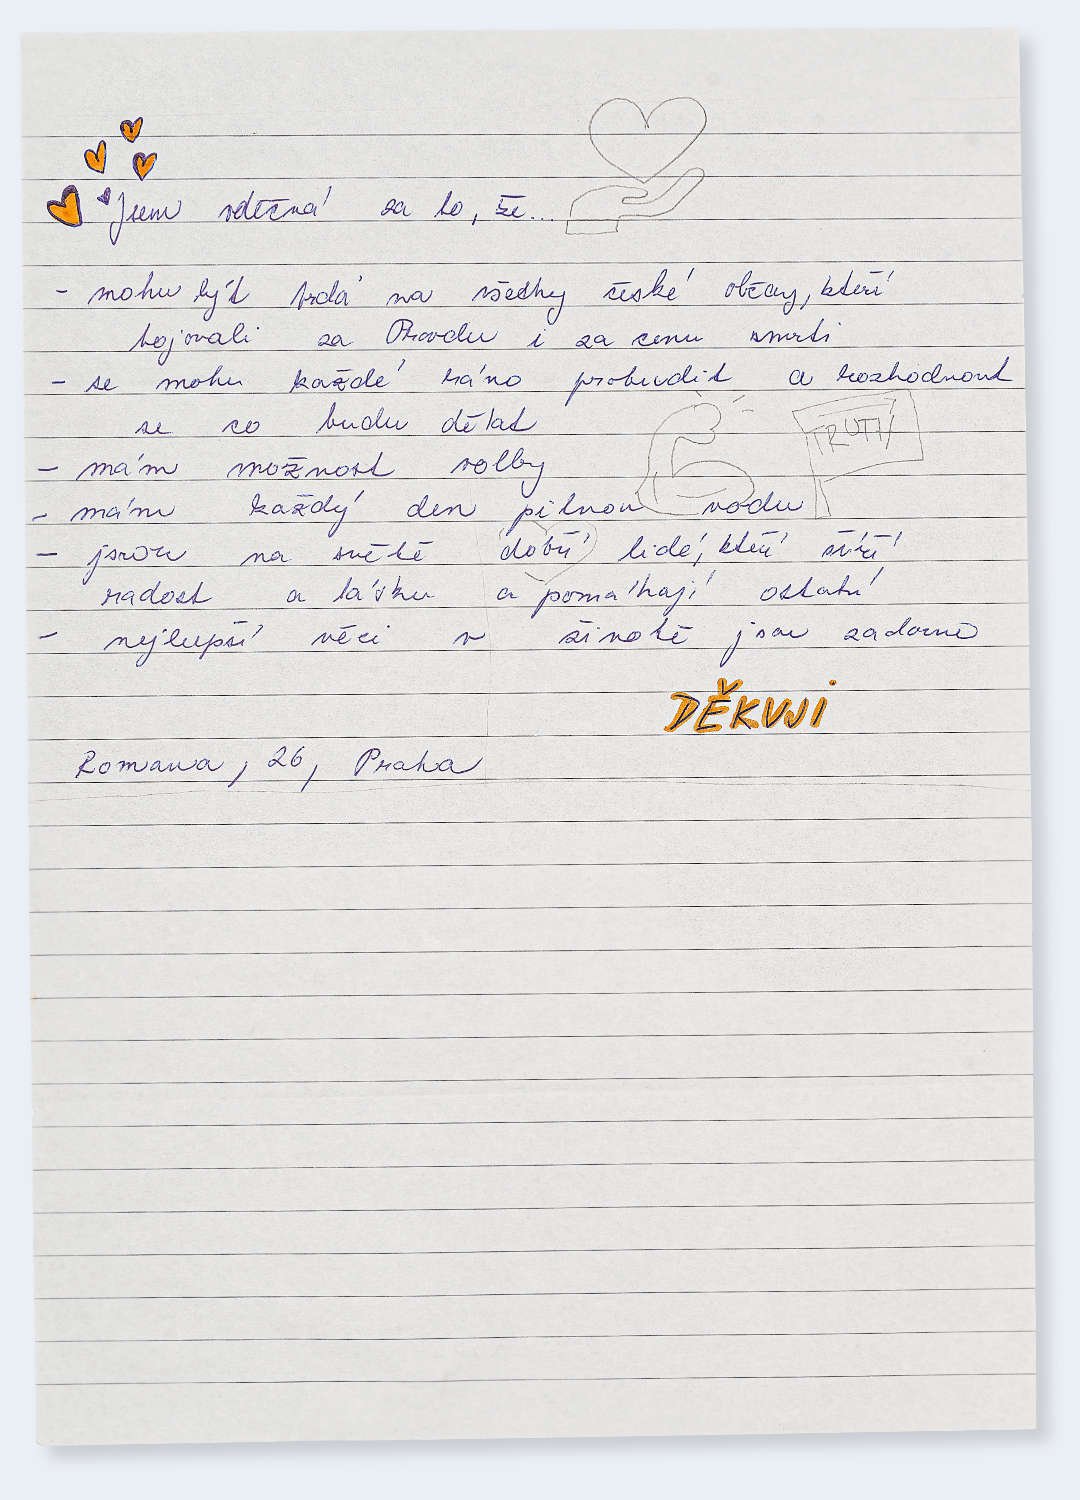 Jsem vděčná za to, že...
- mohu být hrdá na všechny české občany, kteří
bojovali za Pravdu i za cenu smrti
- se mohu každé ráno probudit a rozhodnout
se co budu dělat
TRUTH
- mám možnost volby
- mám každý den pitnou vodu
- jsou na světě dobří lidé, kteří šíří
radost a lásku a pomáhají ostatní
- nejlepší věci v životě jsou zadarmo
DĚKUJI
Romana, 26, Praha